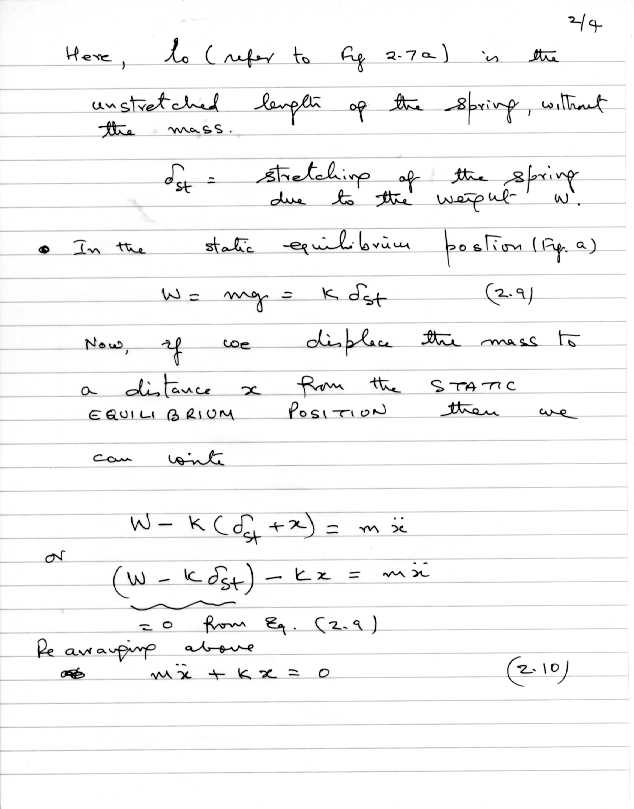 2/4
Here, lo (refer to Fig 2.7a) is the
unstretched length of the spring, without
the mass.
δst = stretching of the spring
due to the weight W.
• In the static equilibrium postion (Fig. a)
W = mg = K δst (2.9)
Now, if we displace the mass to
a distance x from the STATIC
EQUILIBRIUM POSITION then we
can write
W - K(δst + x) = m ẍ
or
(W - K δst) - Kx = mẍ
= 0 from Eq. (2.9)
Re arranging above
mẍ + Kx = 0 (2.10)